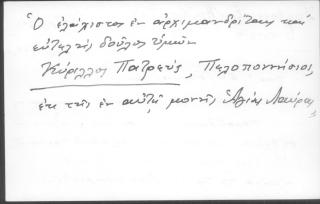 Ὁ ἐλάχιστος ἐν ἀρχιμανδρίταις καὶ
εὐτελὴς δοῦλος ὑμῶν
Κύριλλος Πατρεύς, Πελοποννήσιος,
ἐκ τῆς ἐν αὐτῇ μονῆς Ἁγίας Λαύρας